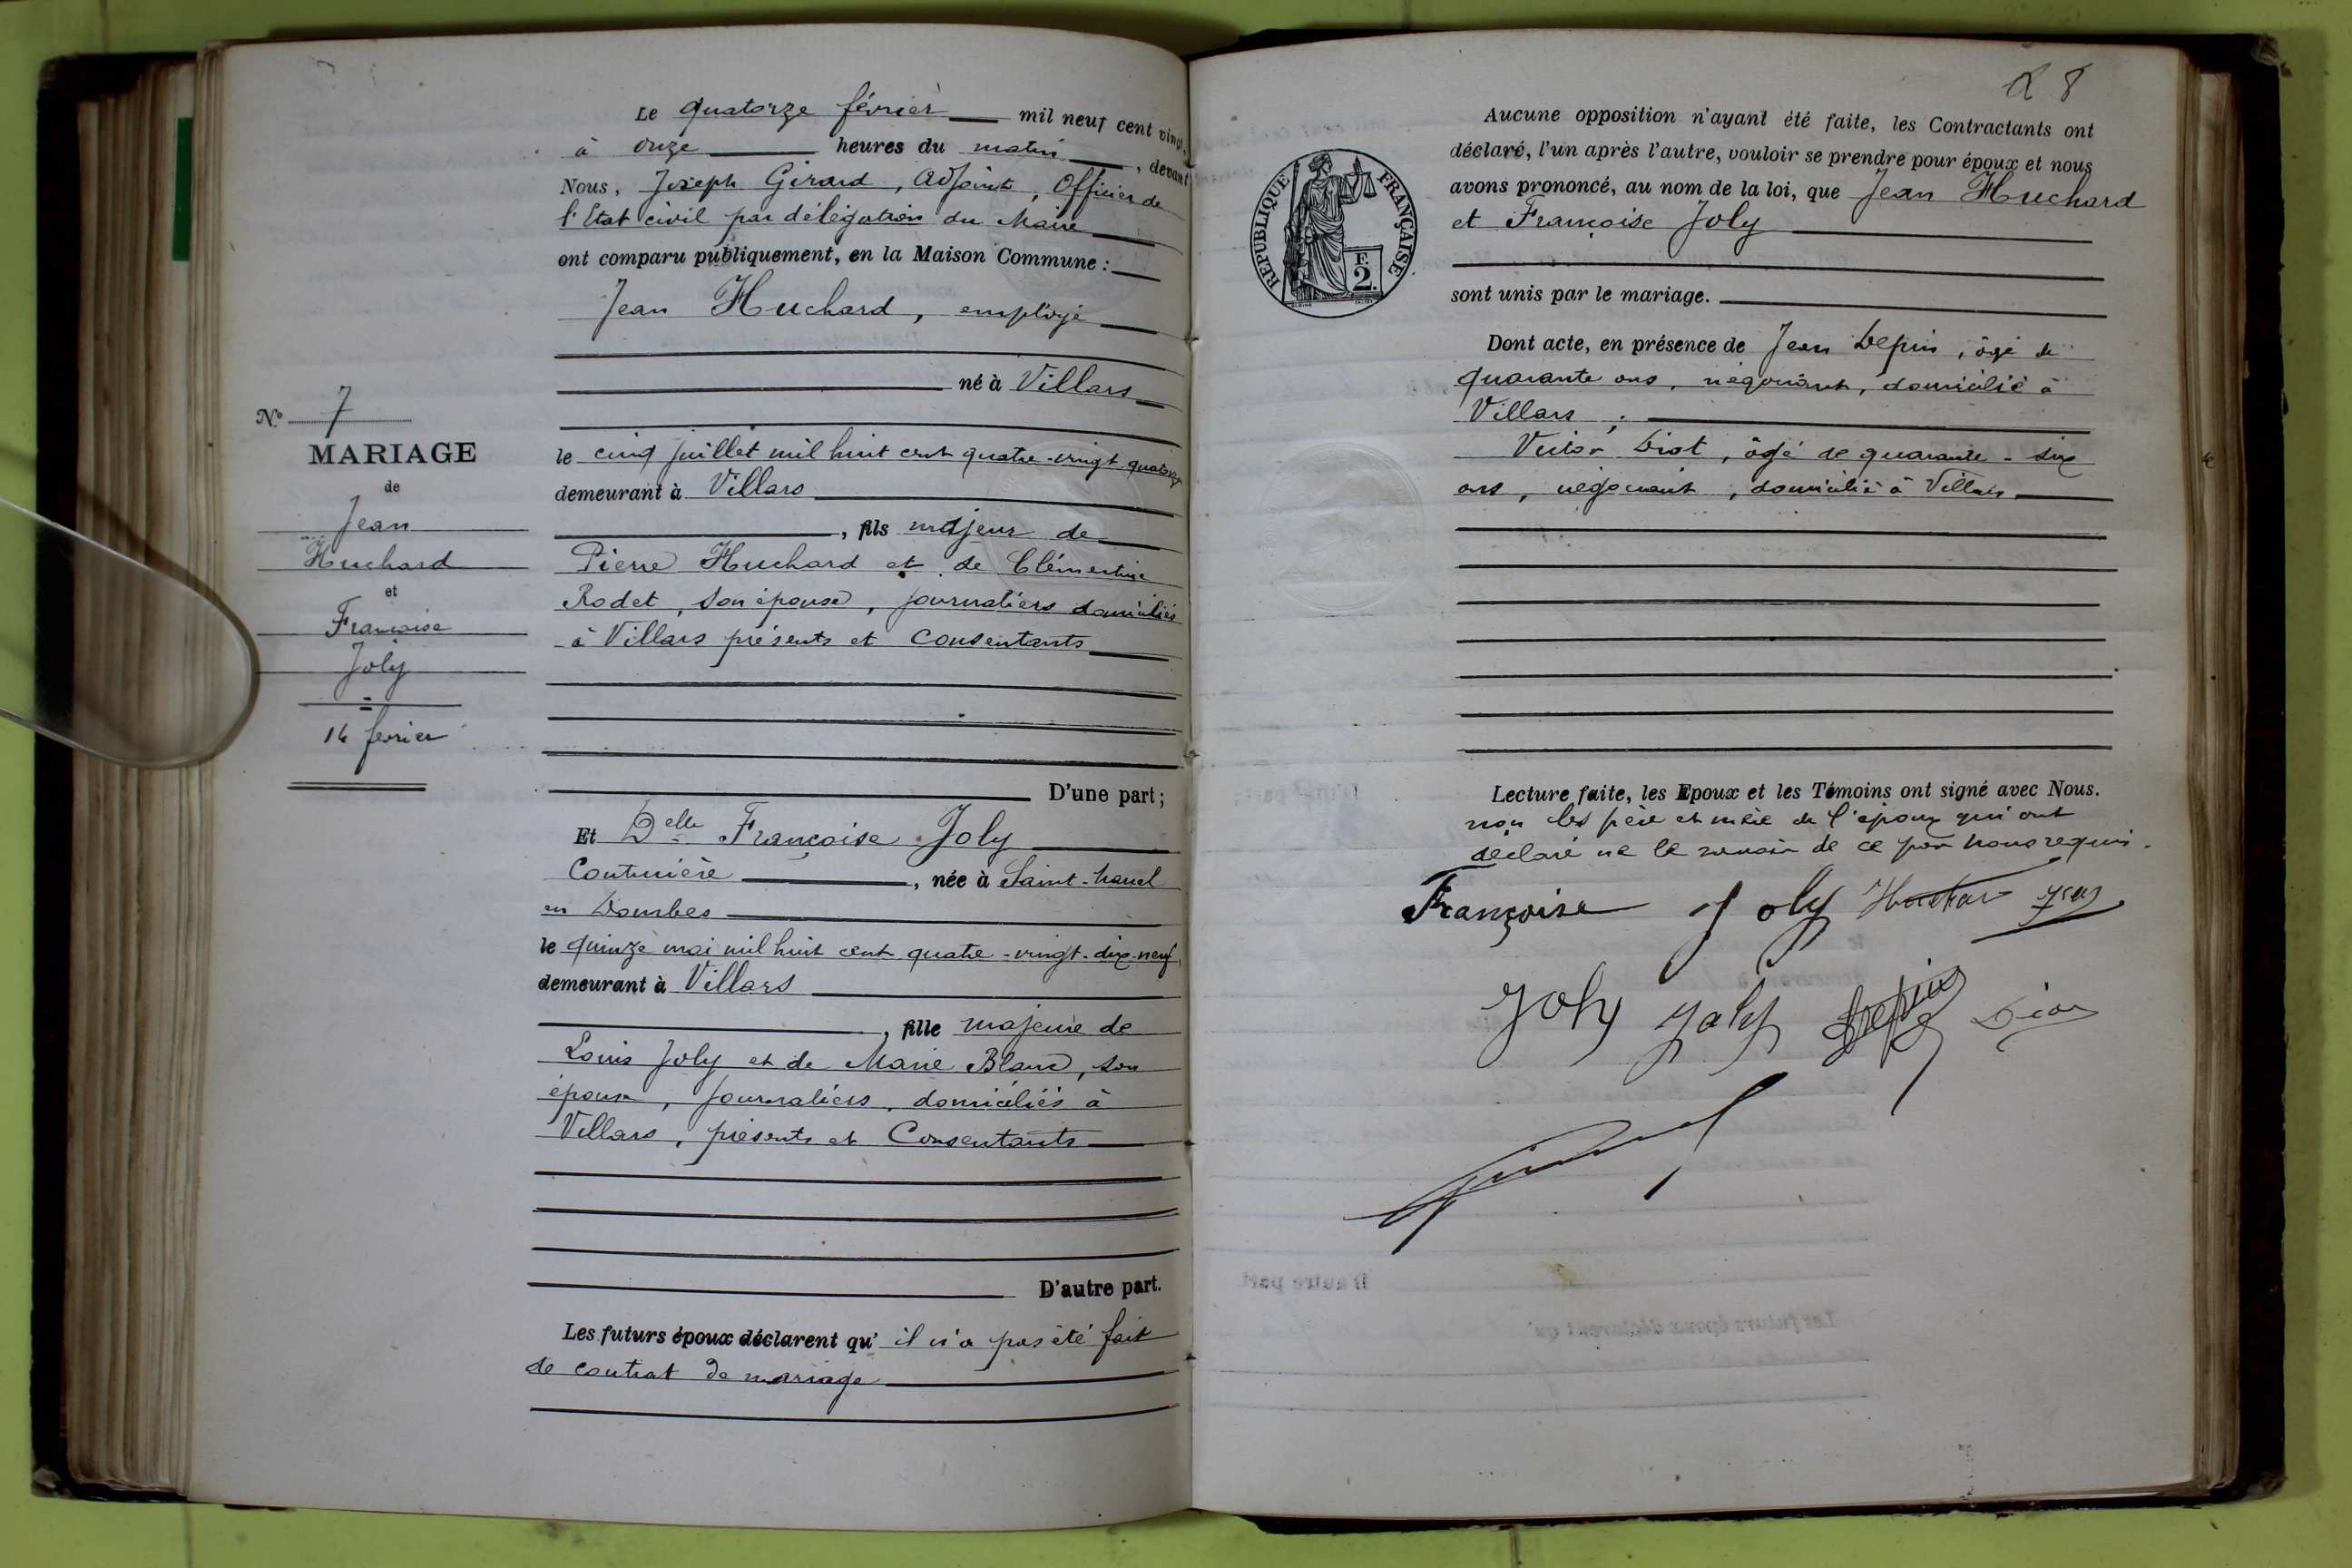 Le quatorze février mil neuf cent vingt
à onze heures du matin, devant
Nous, Joseph Girard, Adjoint, Officier de
l'Etat civil par délégation du Maire
ont comparu publiquement, en la Maison Commune :
Jean Huchard, employé
né à Villars
le cinq juillet mil huit cent quatre-vingt quatorze
demeurant à Villars
, fils majeur de
Pierre Huchard et de Clémentine
Rodet, son épouse, journaliers domiciliés
à Villars présents et consentants
D'une part ;
Et Delle Françoise Joly
Couturière, née à Saint-
en Dombes
le quinze mai mil huit cent quatre-vingt-dix-neuf
demeurant à Villars
, fille majeure de
Louis Joly et de Marie Blanc, son
épouse, journaliers, domiciliés à
Villars, présents et Consentants
D'autre part.
Les futurs époux déclarent qu'il n'a pas été fait
de contrat de mariage
N° 7
MARIAGE
de
Jean
Huchard
et
Françoise
Joly
14 février
28
Aucune opposition n'ayant été faite, les Contractants ont
déclaré, l'un après l'autre, vouloir se prendre pour époux et nous
avons prononcé, au nom de la loi, que Jean Huchard
et Françoise Joly
sont unis par le mariage.
RÉPUBLIQUE FRANÇAISE
F.
2.
Dont acte, en présence de Jean Depin, âgé de
quarante ans, négociant, domicilié à
Villars ;
Victor Diot, âgé de quarante-six
ans, négociant, domicilié à Villars
Lecture faite, les Epoux et les Témoins ont signé avec Nous.
non les père et mère de l'époux qui ont
déclaré ne le savoir de ce par nous requis.
Françoise Joly Jean
Joly Joly Depin